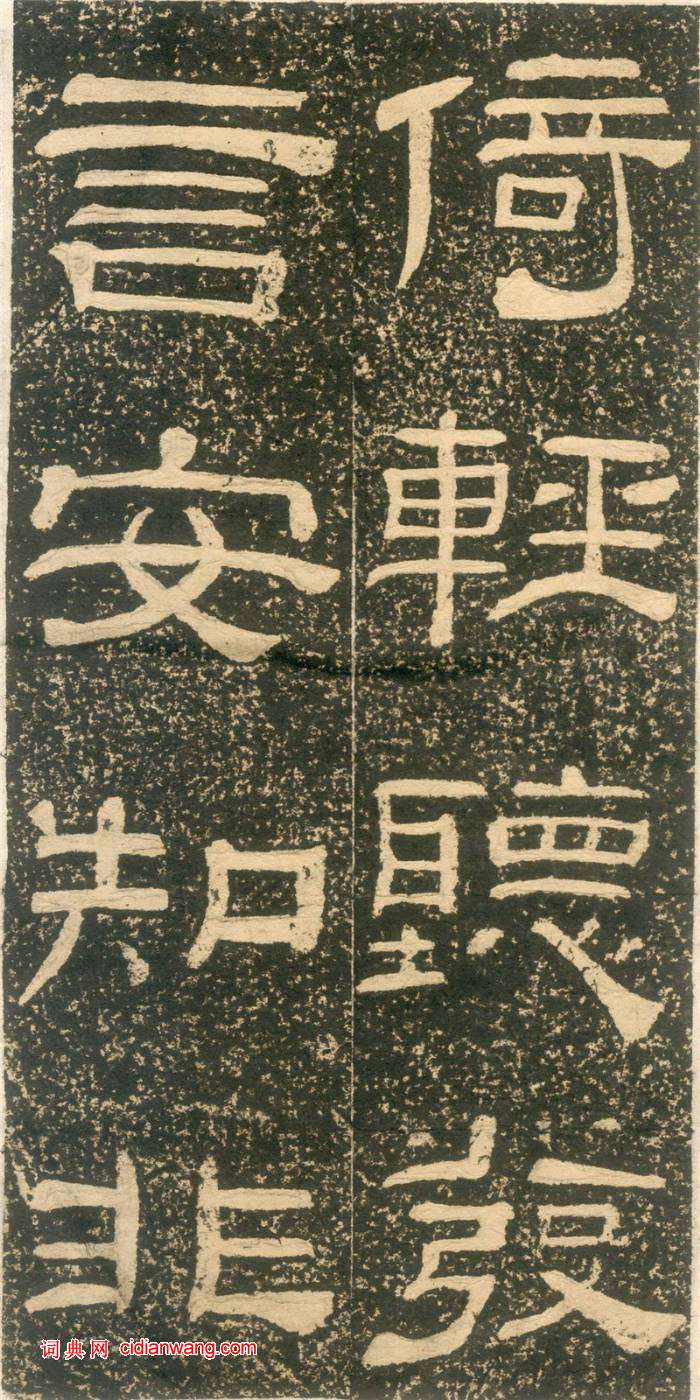 倚輕聽發
言安知非
词典网 cidianwang.com